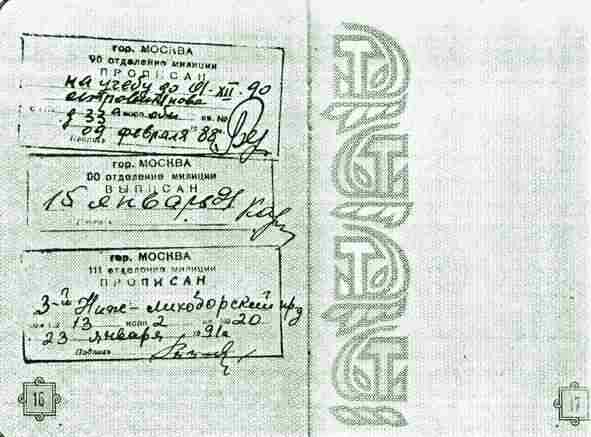 гор. МОСКВА
90 отделение милиции
ПРОПИСАН
на учебу до 01-XII-90
д 33 общ кв. №
09 февраля 1988
Подпись
гор. МОСКВА
90 отделение милиции
ВЫПИСАН
15 январь 91
гор. МОСКВА
111 отделение милиции
ПРОПИСАН
3-й Ниж-лихоборский прд
13 корп 2 20
23 января 91г
Подпись
16
17